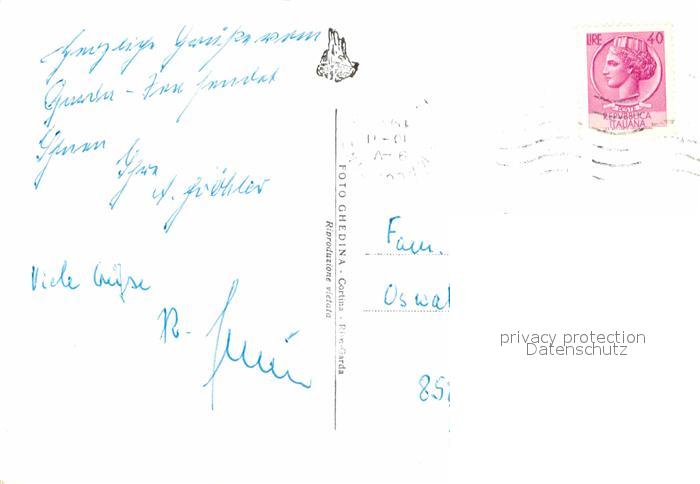 Herzliche Grüße vom
Garda-See sendet
Ihnen
Ihre
Viele Grüße
R.
FOTO GHEDINA - Cortina - Riva Garda
Riproduzione vietata
LIRE 40
REPVBBLICA
ITALIANA
Fam.
Oswal
privacy protection
Datenschutz